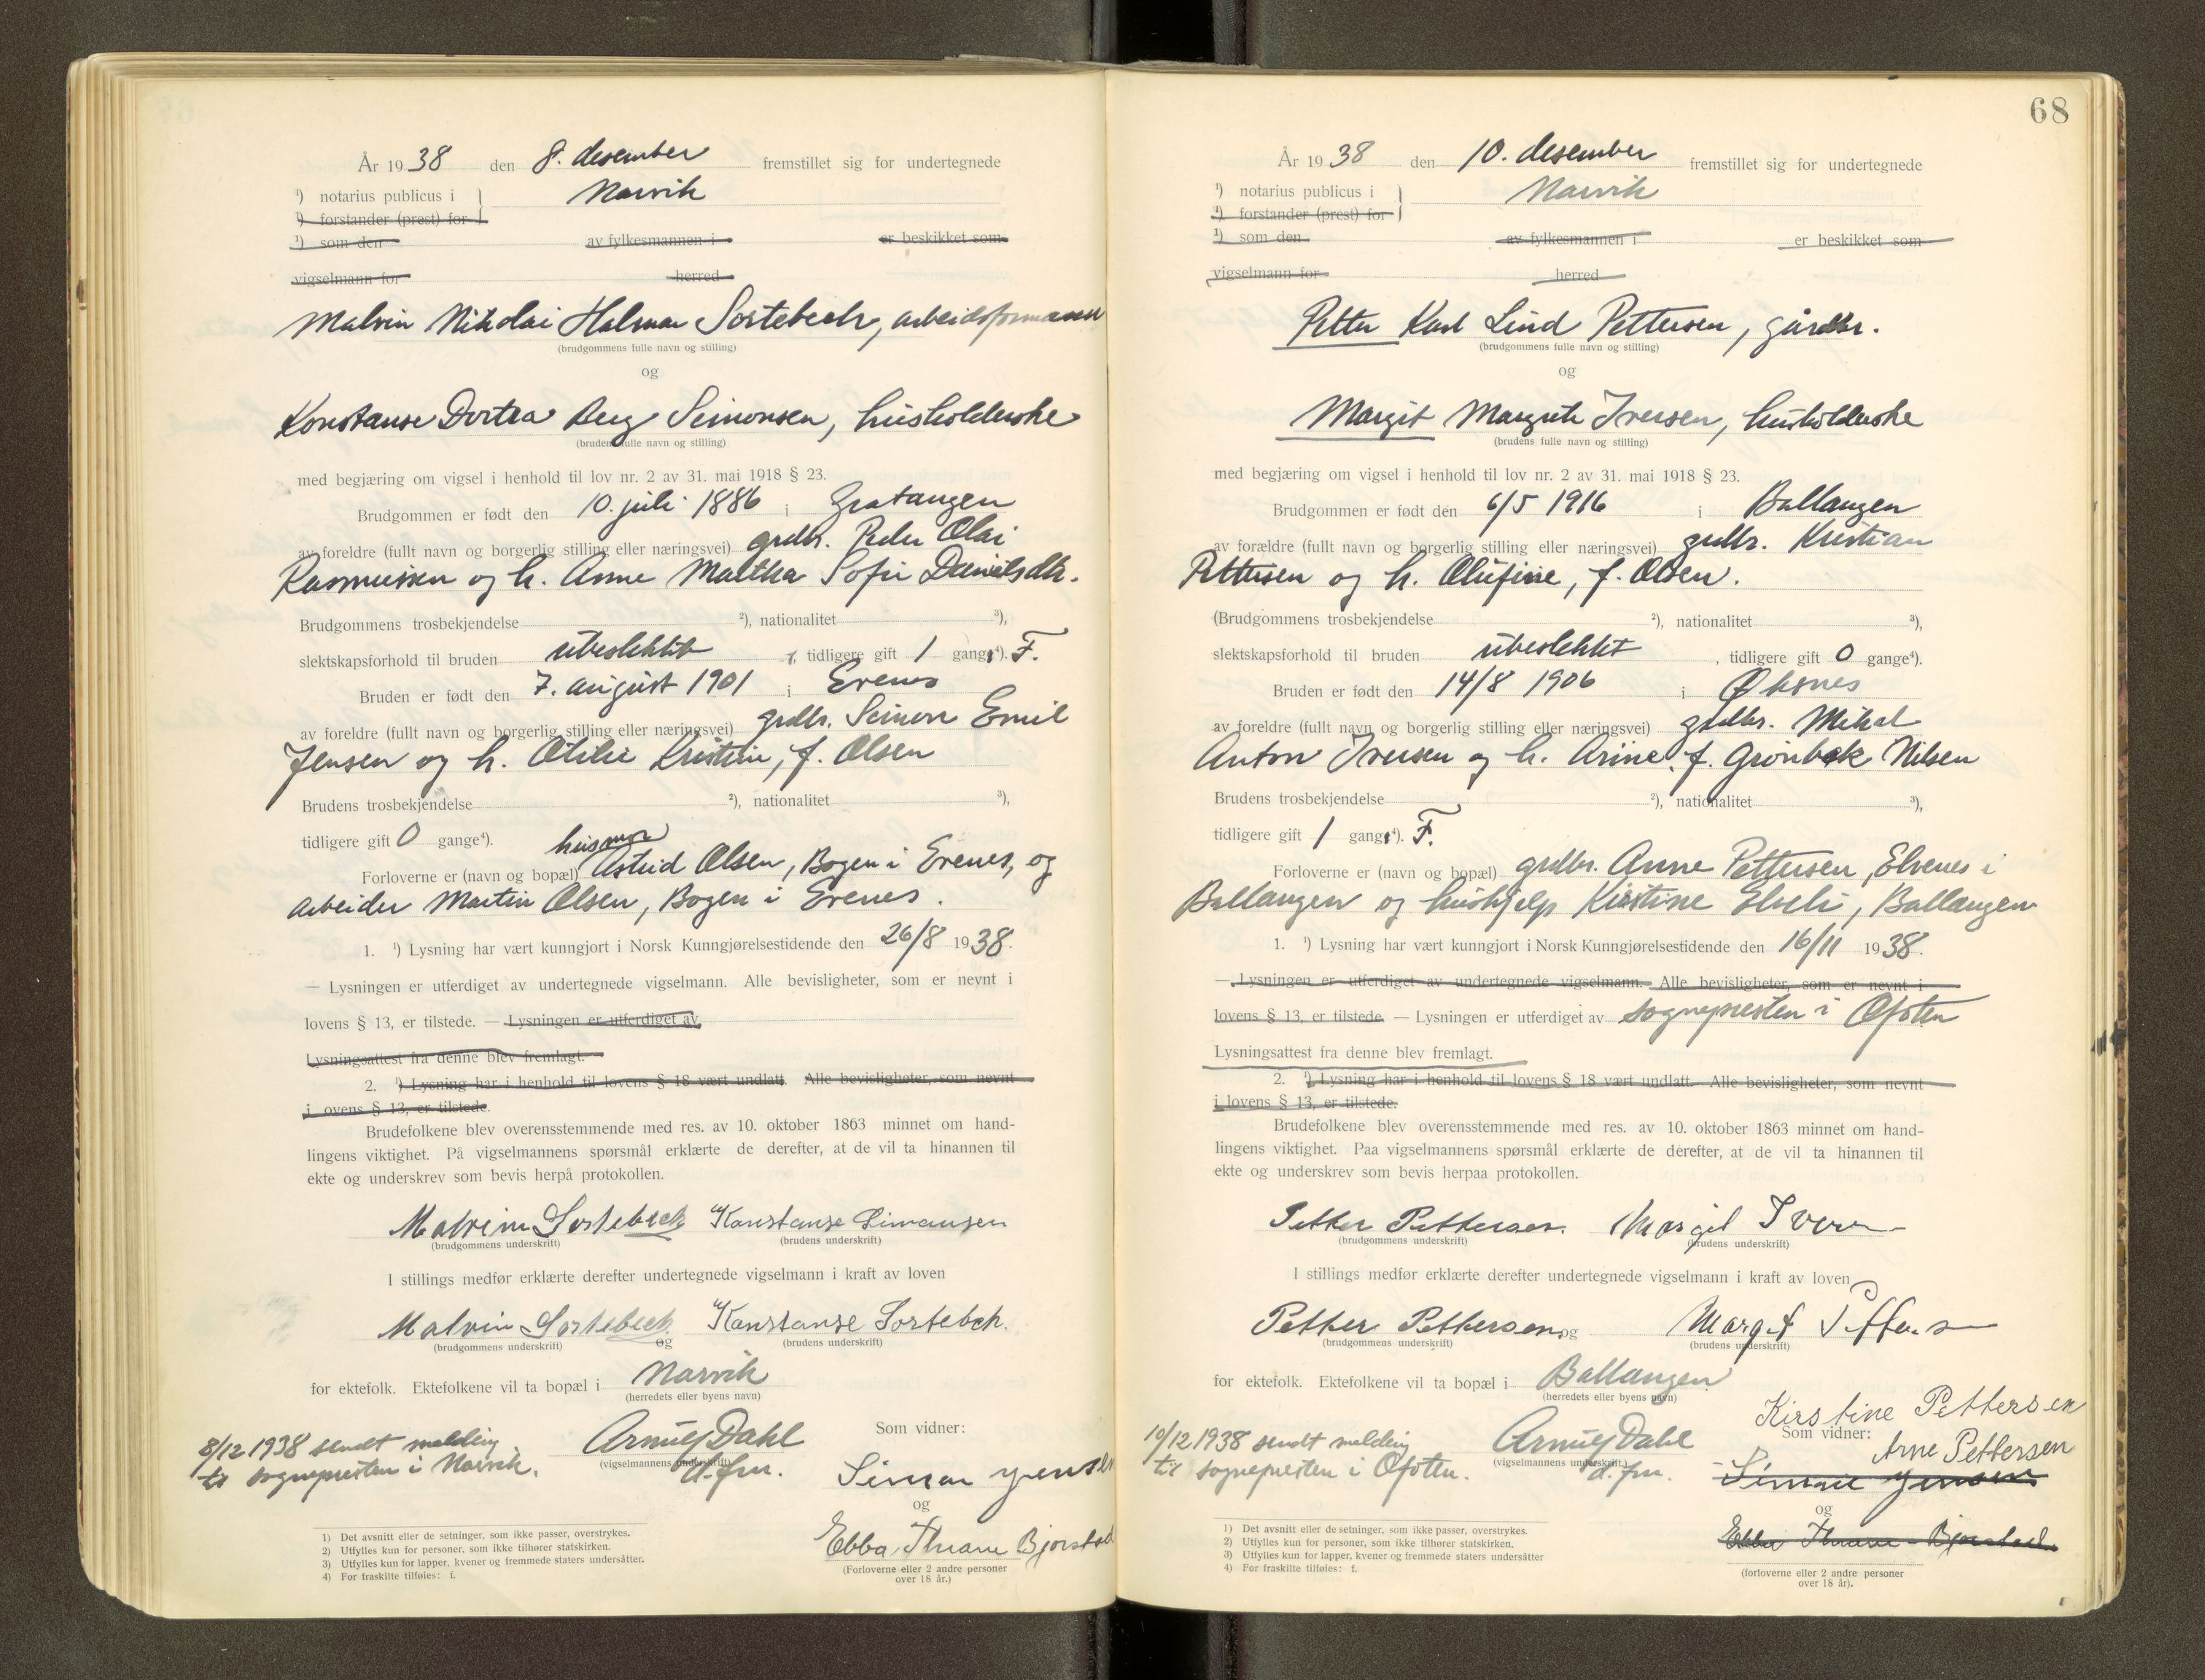 År 1938 den 8. desember fremstillet sig for undertegnede
¹) notarius publicus i } Narvik
¹) forstander (prest) for
¹) som den av fylkesmannen i er beskikket som
vigselmann for herred
Malvin Nikolai Halmar Sortebech, arbeidsformann
(brudgommens fulle navn og stilling)
og
Konstanse Dortea Berg Simonsen, husholderske
(brudens fulle navn og stilling)
med begjæring om vigsel i henhold til lov nr. 2 av 31. mai 1918 § 23.
Brudgommen er født den 10. juli 1886 i Gratangen
av foreldre (fullt navn og borgerlig stilling eller næringsvei) grdbr. Peder Olai
Rasmussen og h. Anne Maltha Sofie Danielsdtr.
Brudgommens trosbekjendelse ²), nationalitet ³),
slektskapsforhold til bruden ubeslektet , tidligere gift 1 gang ⁴). F.
Bruden er født den 7. august 1901 i Evenes
av foreldre (fullt navn og borgerlig stilling eller næringsvei) grdbr. Simon Emil
Jensen og h. Otilie Kristine, f. Olsen
Brudens trosbekjendelse ²), nationalitet ³),
tidligere gift 0 gange⁴). husmor
Forloverne er (navn og bopæl) Astrid Olsen, Bogen i Evenes, og
arbeider Martin Olsen, Bogen i Evenes.
1. ¹) Lysning har vært kunngjort i Norsk Kunngjørelsestidende den 26/8 1938.
— Lysningen er utferdiget av undertegnede vigselmann. Alle bevisligheter, som er nevnt i
lovens § 13, er tilstede. — Lysningen er utferdiget av
Lysningsattest fra denne blev fremlagt.
2. ¹) Lysning har i henhold til lovens § 18 vært undlatt. Alle bevisligheter, som nevnt
i ovens § 13, er tilstede.
Brudefolkene blev overensstemmende med res. av 10. oktober 1863 minnet om hand-
lingens viktighet. På vigselmannens spørsmål erklærte de derefter, at de vil ta hinannen til
ekte og underskrev som bevis herpå protokollen.
Malvin Sortebech Konstanse Simonsen
(brudgommens underskrift) (brudens underskrift)
I stillings medfør erklærte derefter undertegnede vigselmann i kraft av loven
Malvin Sortebech og Konstanse Sortebch.
(brudgommens underskrift) (brudens underskrift)
for ektefolk. Ektefolkene vil ta bopæl i Narvik
(herredets eller byens navn)
8/12 1938 sendt melding
til sognepresten i Narvik.
Arnulf Dahl
(vigselmannens underskrift)
d. fm.
Som vidner:
Simon Jensen
og
Ebba Thrane Bjørstad
(Forloverne eller 2 andre personer
over 18 år.)
1) Det avsnitt eller de setninger, som ikke passer, overstrykes.
2) Utfylles kun for personer, som ikke tilhører statskirken.
3) Utfylles kun for lapper, kvener og fremmede staters undersåtter.
4) For fraskilte tilføies: f.
68
År 1938 den 10. desember fremstillet sig for undertegnede
¹) notarius publicus i } Narvik
¹) forstander (prest) for
¹) som den av fylkesmannen i er beskikket som
vigselmann for herred
Petter Karl Lind Pettersen, gårdbr.
(brudgommens fulle navn og stilling)
og
Margit Margrete Iversen, husholderske
(brudens fulle navn og stilling)
med begjæring om vigsel i henhold til lov nr. 2 av 31. mai 1918 § 23.
Brudgommen er født den 6/5 1916 i Ballangen
av forældre (fullt navn og borgerlig stilling eller næringsvei) grdbr. Kristian
Pettersen og h. Olufine, f. Olsen.
(Brudgommens trosbekjendelse ²), nationalitet ³),
slektskapsforhold til bruden ubeslektet , tidligere gift 0 gange⁴).
Bruden er født den 14/8 1906 i Øksnes
av foreldre (fullt navn og borgerlig stilling eller næringsvei) grdbr. Mikal
Anton Iversen og h. Arine f. Grønbæk Nilsen
Brudens trosbekjendelse ²), nationalitet ³),
tidligere gift 1 gang ⁴). F.
Forloverne er (navn og bopæl) grdbr. Anne Pettersen, Elvenes i
Ballangen og hushjelp Kirstine Elveli, Ballangen
1. ¹) Lysning har vært kunngjort i Norsk Kunngjørelsestidende den 16/11 1938.
— Lysningen er utferdiget av undertegnede vigselmann. Alle bevisligheter, som er nevnt i
lovens § 13, er tilstede. — Lysningen er utferdiget av sognepresten i Ofoten
Lysningsattest fra denne blev fremlagt.
2. ¹) Lysning har i henhold til lovens § 18 vært undlatt. Alle bevisligheter, som nevnt
i lovens § 13, er tilstede.
Brudefolkene blev overensstemmende med res. av 10. oktober 1863 minnet om hand-
lingens viktighet. Paa vigselmannens spørsmål erklærte de derefter, at de vil ta hinannen til
ekte og underskrev som bevis herpaa protokollen.
Petter Pettersen. Margit Iversen
(brudgommens underskrift) (brudens underskrift)
I stillings medfør erklærte derefter undertegnede vigselmann i kraft av loven
Petter Pettersen og Margit Pettersen
(brudgommens underskrift) (brudens underskrift)
for ektefolk. Ektefolkene vil ta bopæl i Ballangen
(herredets eller byens navn)
10/12 1938 sendt melding
til sognepresten i Ofoten.
Arnulf Dahl
(vigselmannens underskrift)
d. fm.
Kirstine Pettersen
Som vidner:
Arne Pettersen
Simon Jensen
og
Ebba Thrane Bjørstad
(forloverne eller 2 andre personer
over 18 år).
1) Det avsnitt eller de setninger, som ikke passer, overstrykes.
2) Utfylles kun for personer, som ikke tilhører statskirken.
3) Utfylles kun for lapper, kvener og fremmede staters undersåtter
4) For fraskilte tilføies: f.